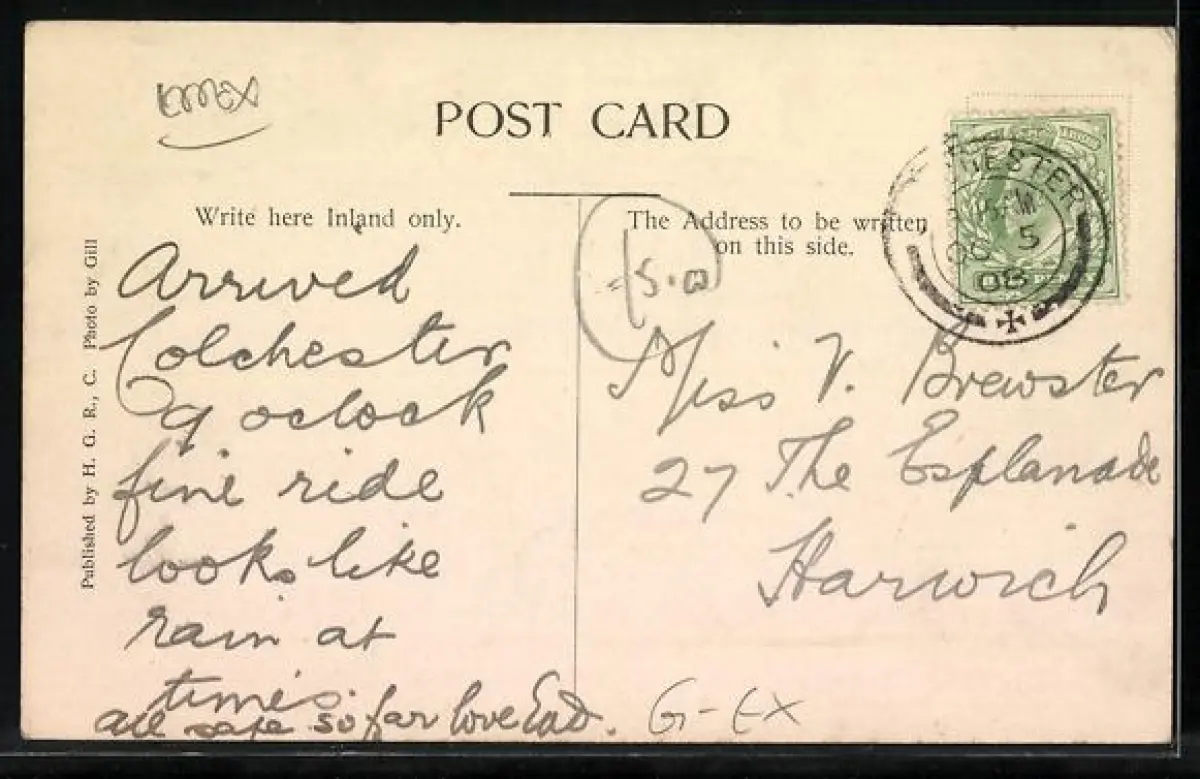 POST CARD
Write here Inland only.
The Address to be written
on this side.
Published by H. G. R., C. Photo by Gill
Arrived
Colchester
9 oclock
fine ride
looks like
rain at
times.
all safe so far love
Miss V. Brewster
27 The Esplanade
Harwich
G-EX
CHESTER
AM
OC 5
08